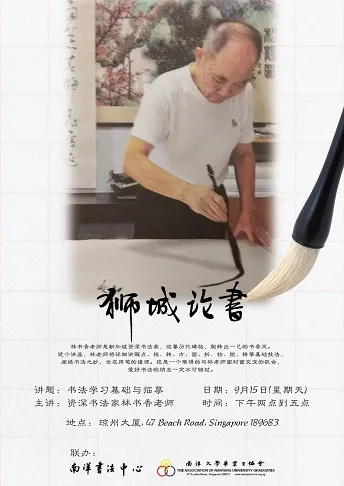 狮城论书
林书香老师是新加坡资深书法家，临摹历代碑帖，脱转出一己的书香风。
这个讲座，林老师将详细讲解点、线、转、方、圆、折、恰、殷、转等基础技法，
阐述书法之妙，全在用笔的道理。这是一个难得的与林老师面对面交流的机会，
爱好书法的朋友一定不可错过。
讲题：书法学习基础与临摹
日期：9月15日(星期天)
主讲：资深书法家林书香老师
时间：下午两点到五点
地点：琼州大厦，47 Beach Road, Singapore 189683
联办：
南洋书法中心
南洋大学毕业生协会
THE ASSOCIATION OF NANYANG UNIVERSITY GRADUATES